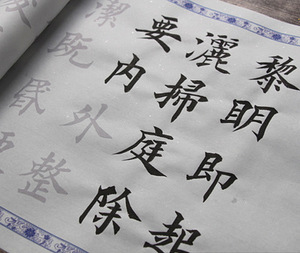 黎明即起
灑掃庭除
要内外整
潔既昬便